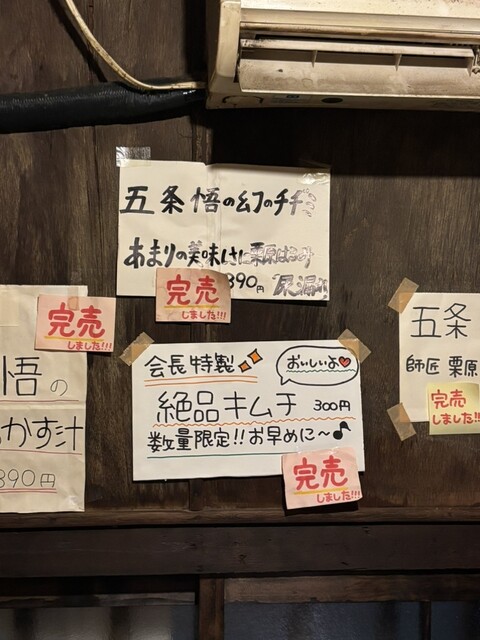 五条悟の幻のチヂミ
あまりの美味しさに栗原はお
890円
尿漏り
完売
しました!!!
完売
しました!!!
悟の
かす汁
890円
会長特製
おいしいよ
絶品キムチ 300円
数量限定!!お早めに〜♪
完売
しました!!!
五条
師匠 栗原
完売
しました!!!